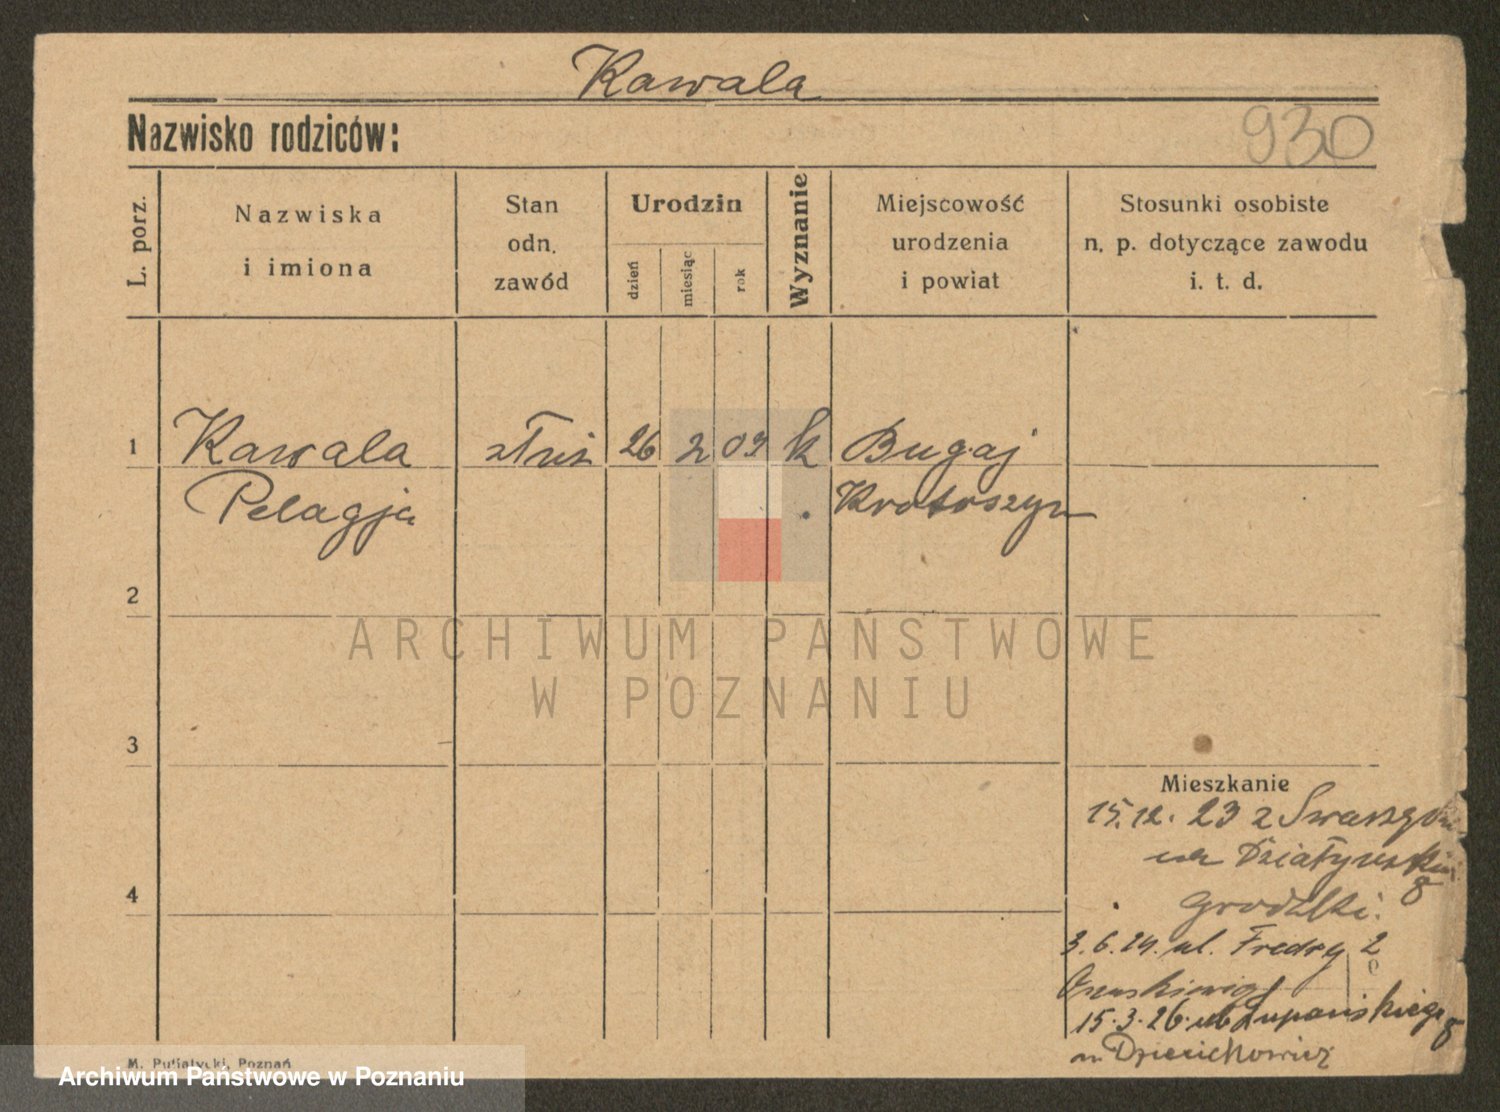 Kawala
Nazwisko rodziców:
930
L. porz.
Nazwiska
i imiona
Stan
odn.
zawód
Urodzin
dzień
miesiąc
rok
Wyznanie
Miejscowość
urodzenia
i powiat
Stosunki osobiste
n. p. dotyczące zawodu
i. t. d.
1
Kawala
Pelagja
służ
26
2
k
Bugaj
Krotoszyn
2
ARCHIWUM PAŃSTWOWE
W POZNANIU
3
4
Mieszkanie
15.12. 23 z
8
3.6.24. ul. Fredry 2
15.3.26. ul Łupańskiego 8
M. Putiatycki, Poznań
Archiwum Państwowe w Poznaniu